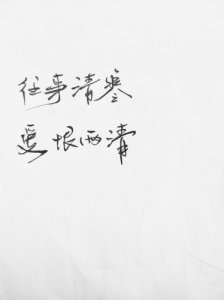 往事清寒
爱恨两清